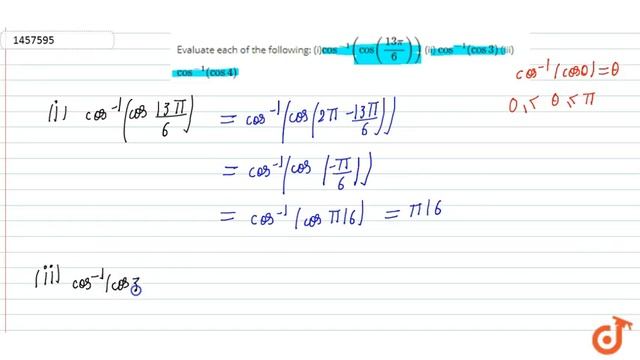 1457595
Evaluate each of the following: (i) cos⁻¹(cos(13π/6)) (ii) cos⁻¹(cos 3) (iii)
cos⁻¹(cos 4)
cos⁻¹(cosθ) = θ
0 ≤ θ ≤ π
(i) cos⁻¹(cos 13π/6) = cos⁻¹(cos(2π - 13π/6))
= cos⁻¹(cos(-π/6))
= cos⁻¹(cos π/6) = π/6
(ii) cos⁻¹(cos 3